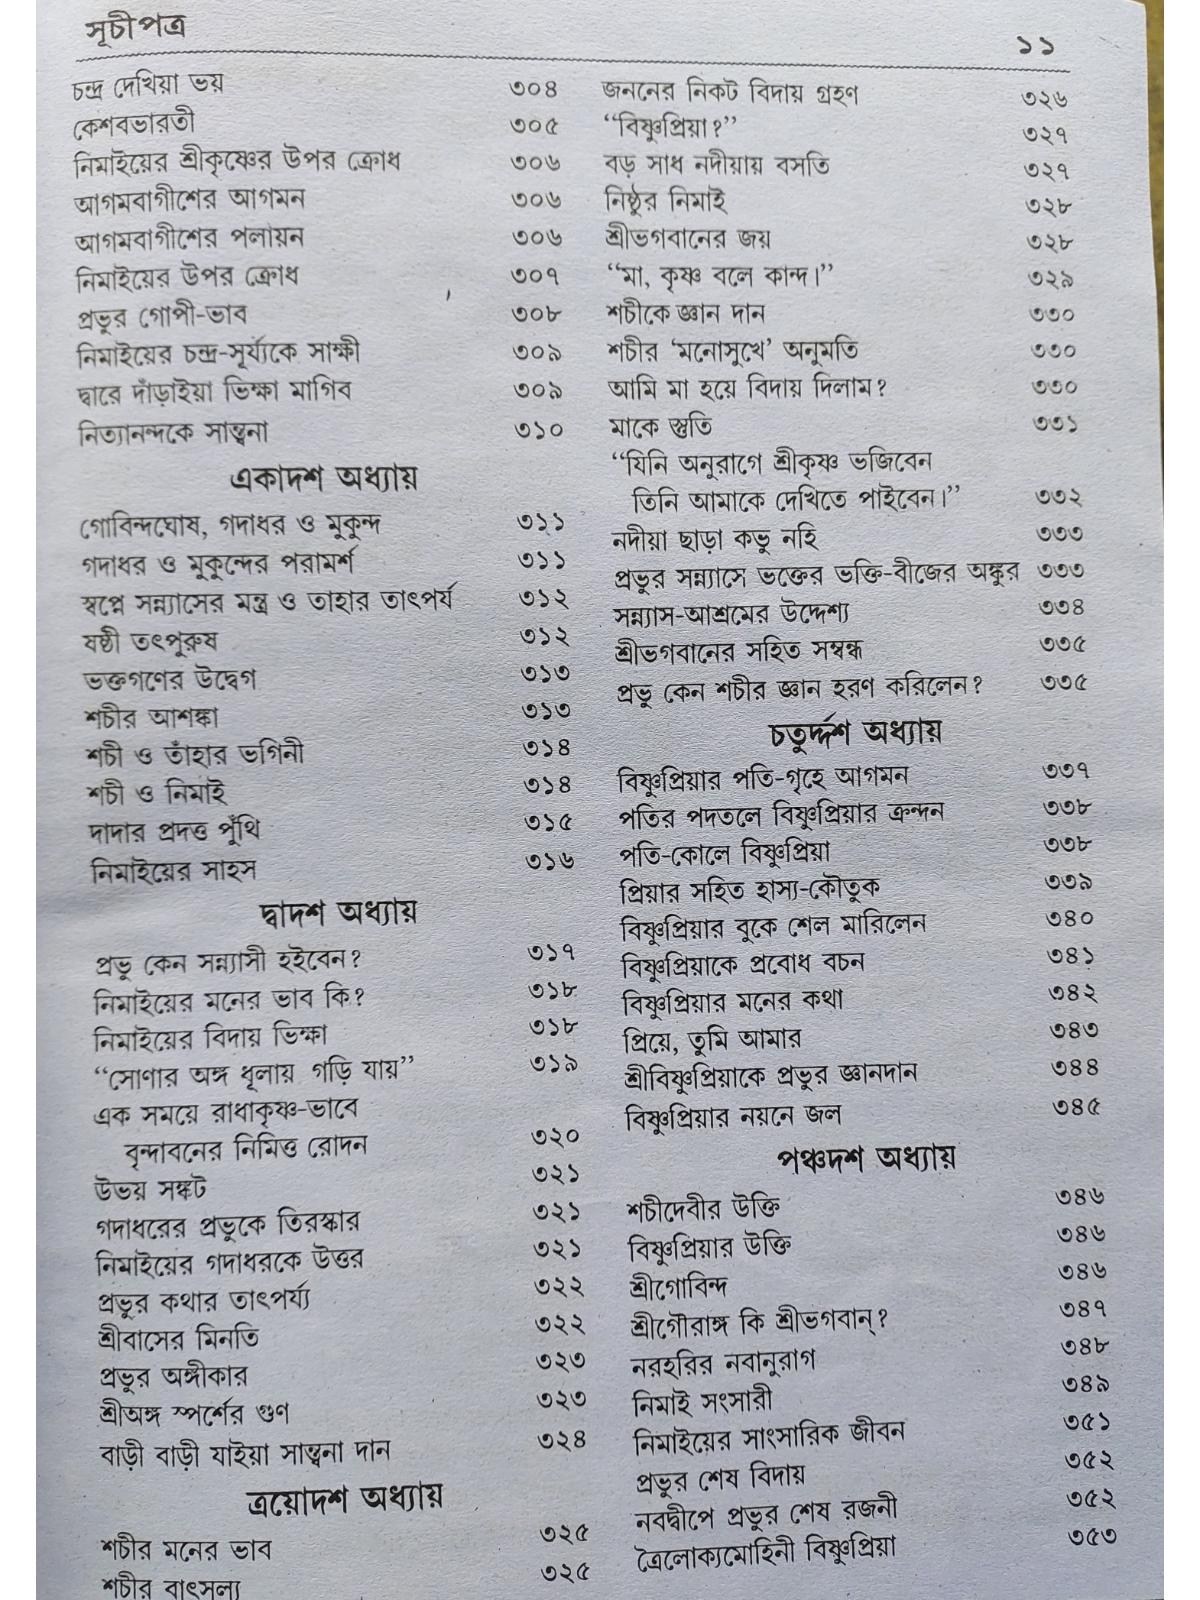 সূচীপত্র ১১
চন্দ্র দেখিয়া ভয় ৩০৪
কেশবভারতী ৩০৫
নিমাইয়ের শ্রীকৃষ্ণের উপর ক্রোধ ৩০৬
আগমবাগীশের আগমন ৩০৬
আগমবাগীশের পলায়ন ৩০৬
নিমাইয়ের উপর ক্রোধ ৩০৭
প্রভুর গোপী-ভাব ৩০৮
নিমাইয়ের চন্দ্র-সূর্য্যকে সাক্ষী ৩০৯
দ্বারে দাঁড়াইয়া ভিক্ষা মাগিব ৩০৯
নিত্যানন্দকে সান্ত্বনা ৩১০
একাদশ অধ্যায়
গোবিন্দঘোষ, গদাধর ও মুকুন্দ ৩১১
গদাধর ও মুকুন্দের পরামর্শ ৩১১
স্বপ্নে সন্ন্যাসের মন্ত্র ও তাহার তাৎপর্য ৩১২
ষষ্ঠী তৎপুরুষ ৩১২
ভক্তগণের উদ্বেগ ৩১৩
শচীর আশঙ্কা ৩১৩
শচী ও তাঁহার ভগিনী ৩১৪
শচী ও নিমাই ৩১৪
দাদার প্রদত্ত পুঁথি ৩১৫
নিমাইয়ের সাহস ৩১৬
দ্বাদশ অধ্যায়
প্রভু কেন সন্ন্যাসী হইবেন? ৩১৭
নিমাইয়ের মনের ভাব কি? ৩১৮
নিমাইয়ের বিদায় ভিক্ষা ৩১৮
“সোণার অঙ্গ ধূলায় গড়ি যায়” ৩১৯
এক সময়ে রাধাকৃষ্ণ-ভাবে
বৃন্দাবনের নিমিত্ত রোদন ৩২০
উভয় সঙ্কট ৩২১
গদাধরের প্রভুকে তিরস্কার ৩২১
নিমাইয়ের গদাধরকে উত্তর ৩২১
প্রভুর কথার তাৎপর্য্য ৩২২
শ্রীবাসের মিনতি ৩২২
প্রভুর অঙ্গীকার ৩২৩
শ্রীঅঙ্গ স্পর্শের গুণ ৩২৩
বাড়ী বাড়ী যাইয়া সান্ত্বনা দান ৩২৪
ত্রয়োদশ অধ্যায়
শচীর মনের ভাব ৩২৫
শচীর বাৎসল্য ৩২৫
জননের নিকট বিদায় গ্রহণ ৩২৬
“বিষ্ণুপ্রিয়া?” ৩২৭
বড় সাধ নদীয়ায় বসতি ৩২৭
নিষ্ঠুর নিমাই ৩২৮
শ্রীভগবানের জয় ৩২৮
“মা, কৃষ্ণ বলে কান্দ।” ৩২৯
শচীকে জ্ঞান দান ৩৩০
শচীর ‘মনোসুখে’ অনুমতি ৩৩০
আমি মা হয়ে বিদায় দিলাম? ৩৩০
মাকে স্তুতি ৩৩১
“যিনি অনুরাগে শ্রীকৃষ্ণ ভজিবেন
তিনি আমাকে দেখিতে পাইবেন।” ৩৩২
নদীয়া ছাড়া কভু নহি ৩৩৩
প্রভুর সন্ন্যাসে ভক্তের ভক্তি-বীজের অঙ্কুর ৩৩৩
সন্ন্যাস-আশ্রমের উদ্দেশ্য ৩৩৪
শ্রীভগবানের সহিত সম্বন্ধ ৩৩৫
প্রভু কেন শচীর জ্ঞান হরণ করিলেন? ৩৩৫
চতুর্দ্দশ অধ্যায়
বিষ্ণুপ্রিয়ার পতি-গৃহে আগমন ৩৩৭
পতির পদতলে বিষ্ণুপ্রিয়ার ক্রন্দন ৩৩৮
পতি-কোলে বিষ্ণুপ্রিয়া ৩৩৮
প্রিয়ার সহিত হাস্য-কৌতুক ৩৩৯
বিষ্ণুপ্রিয়ার বুকে শেল মারিলেন ৩৪০
বিষ্ণুপ্রিয়াকে প্রবোধ বচন ৩৪১
বিষ্ণুপ্রিয়ার মনের কথা ৩৪২
প্রিয়ে, তুমি আমার ৩৪৩
শ্রীবিষ্ণুপ্রিয়াকে প্রভুর জ্ঞানদান ৩৪৪
বিষ্ণুপ্রিয়ার নয়নে জল ৩৪৫
পঞ্চদশ অধ্যায়
শচীদেবীর উক্তি ৩৪৬
বিষ্ণুপ্রিয়ার উক্তি ৩৪৬
শ্রীগোবিন্দ ৩৪৬
শ্রীগৌরাঙ্গ কি শ্রীভগবান্? ৩৪৭
নরহরির নবানুরাগ ৩৪৮
নিমাই সংসারী ৩৪৯
নিমাইয়ের সাংসারিক জীবন ৩৫১
প্রভুর শেষ বিদায় ৩৫২
নবদ্বীপে প্রভুর শেষ রজনী ৩৫২
ত্রৈলোক্যমোহিনী বিষ্ণুপ্রিয়া ৩৫৩